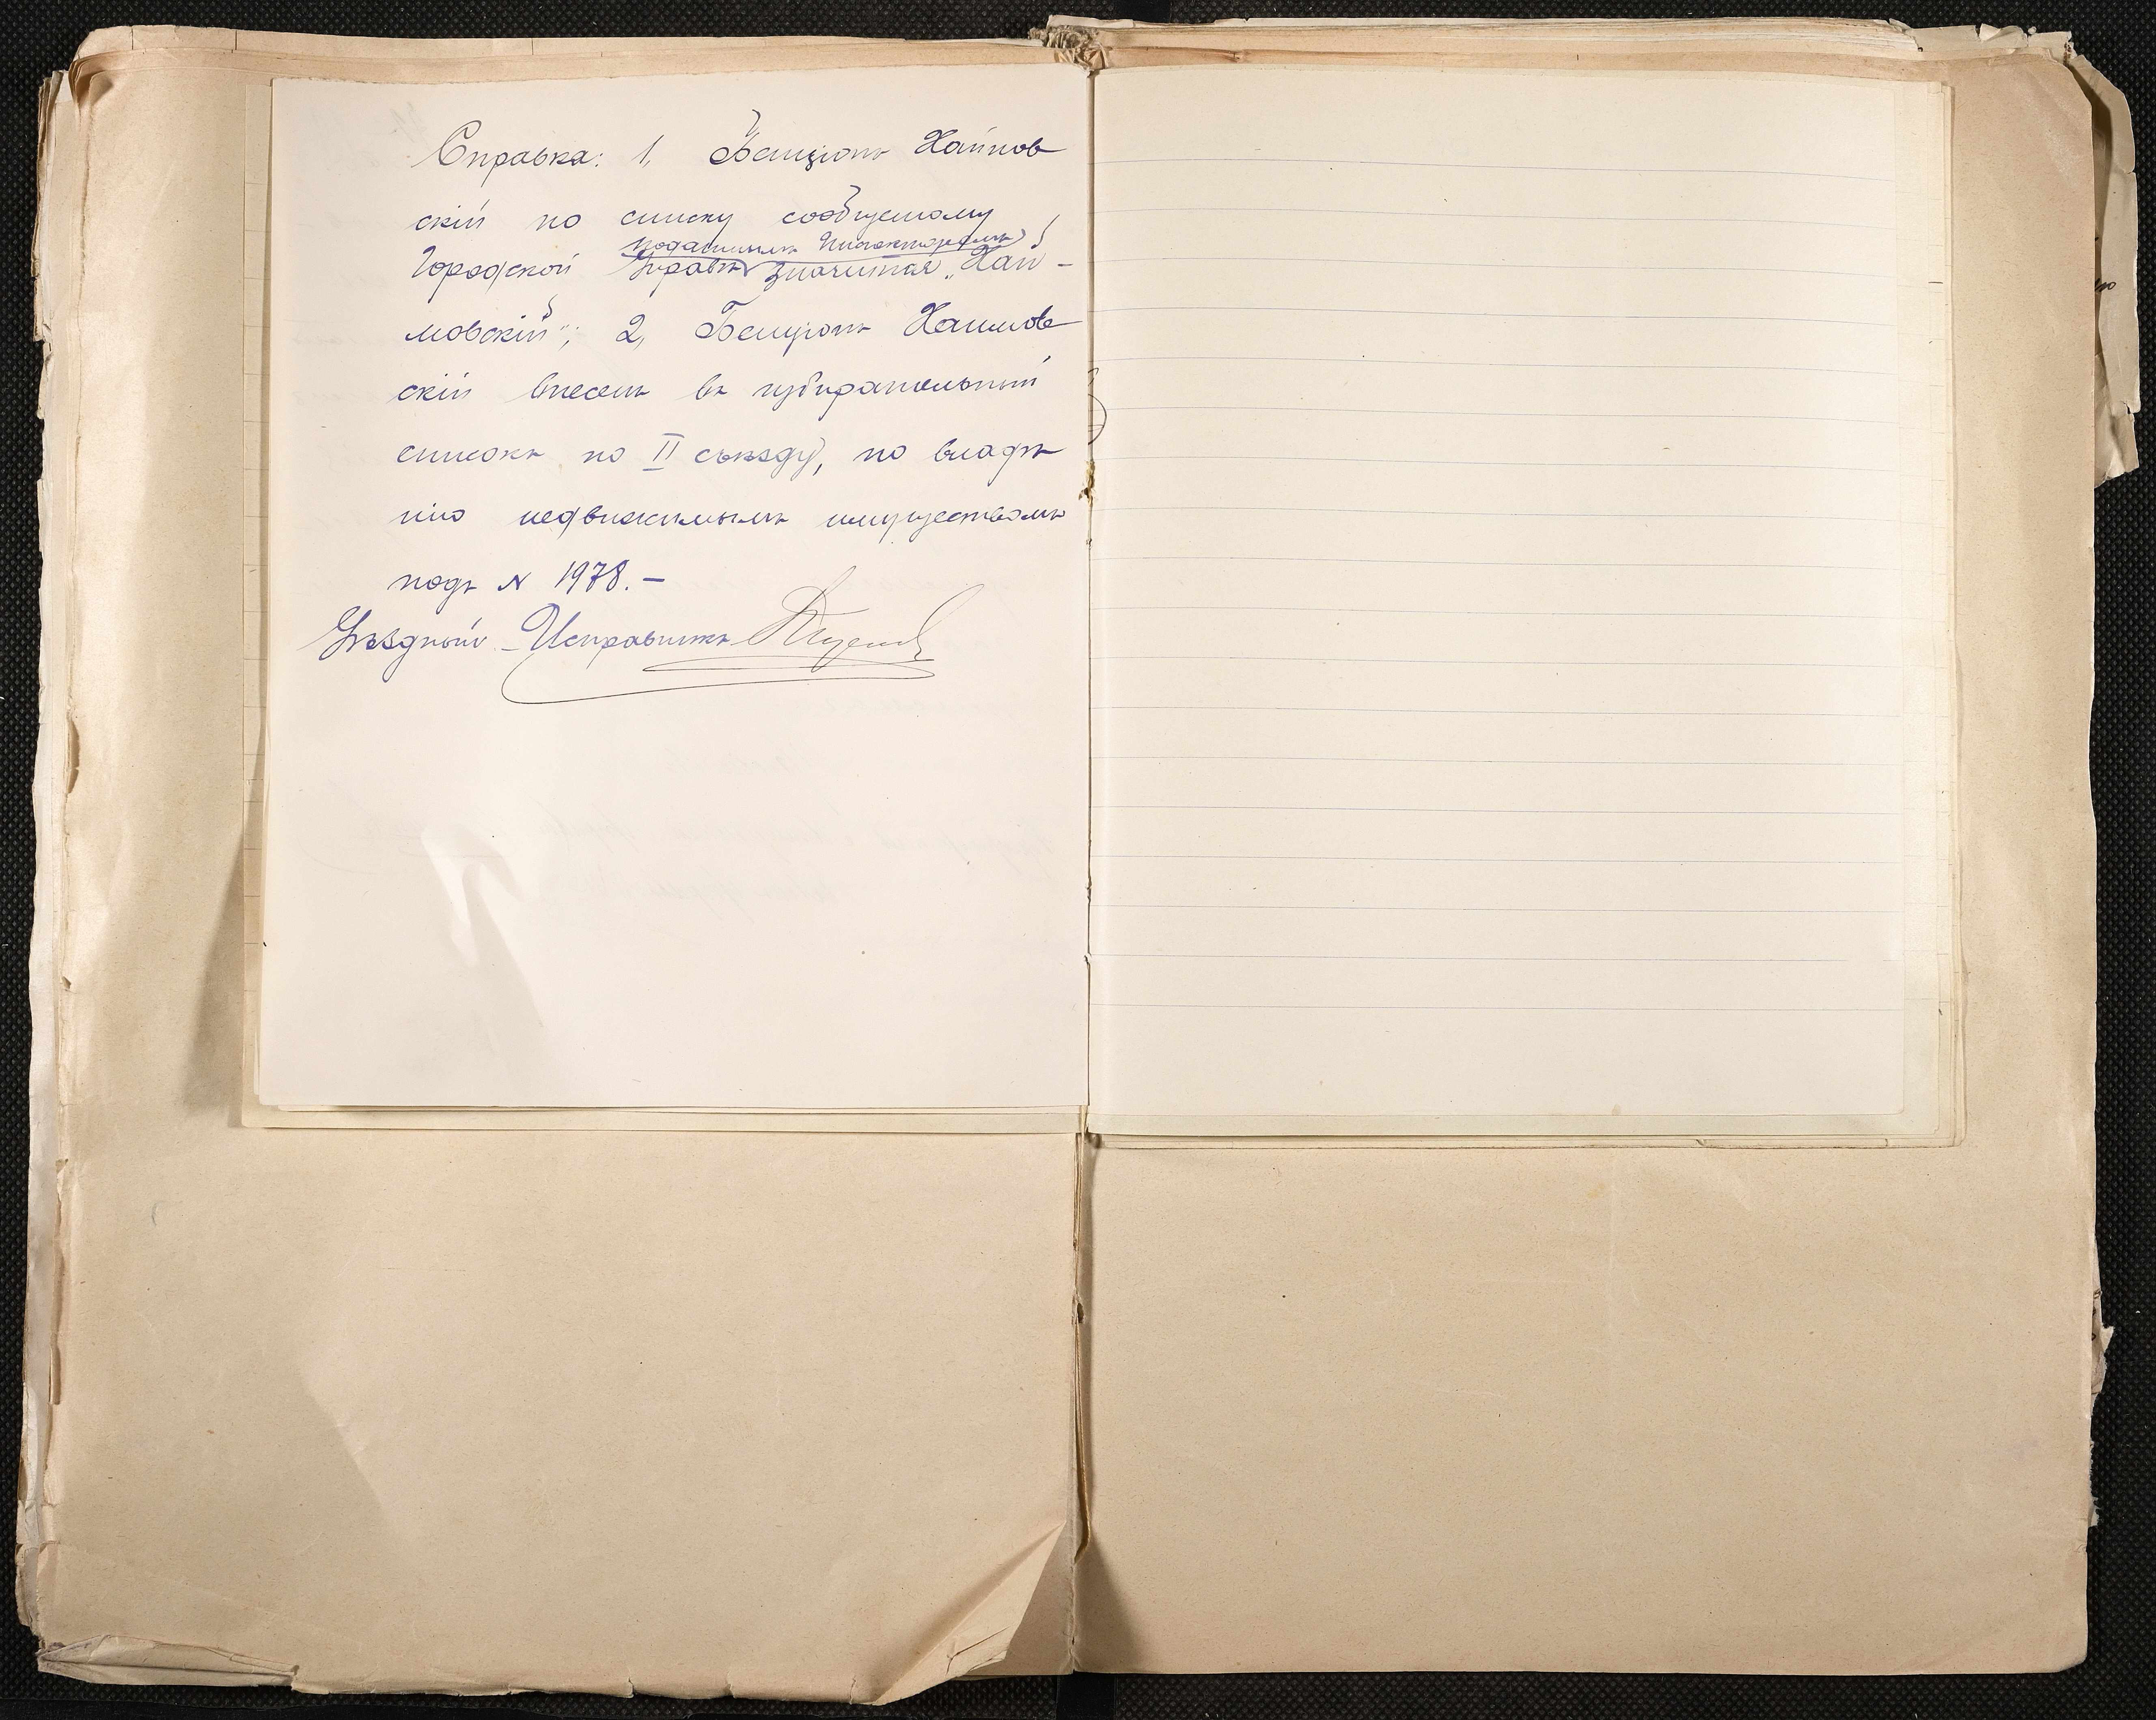 Справка: 1, Бенціонъ Хаймов
скій по списку сообщенному
податнымъ Инспекторомъ
Городской Управѣ значится „Хай-
мовскій“; 2, Бенціонъ Хаимов
скій внесенъ въ избирательный
списокъ по II съѣзду, по владѣ
нію недвижимымъ имуществомъ
подъ № 1978.—
Уѣздный Исправникъ